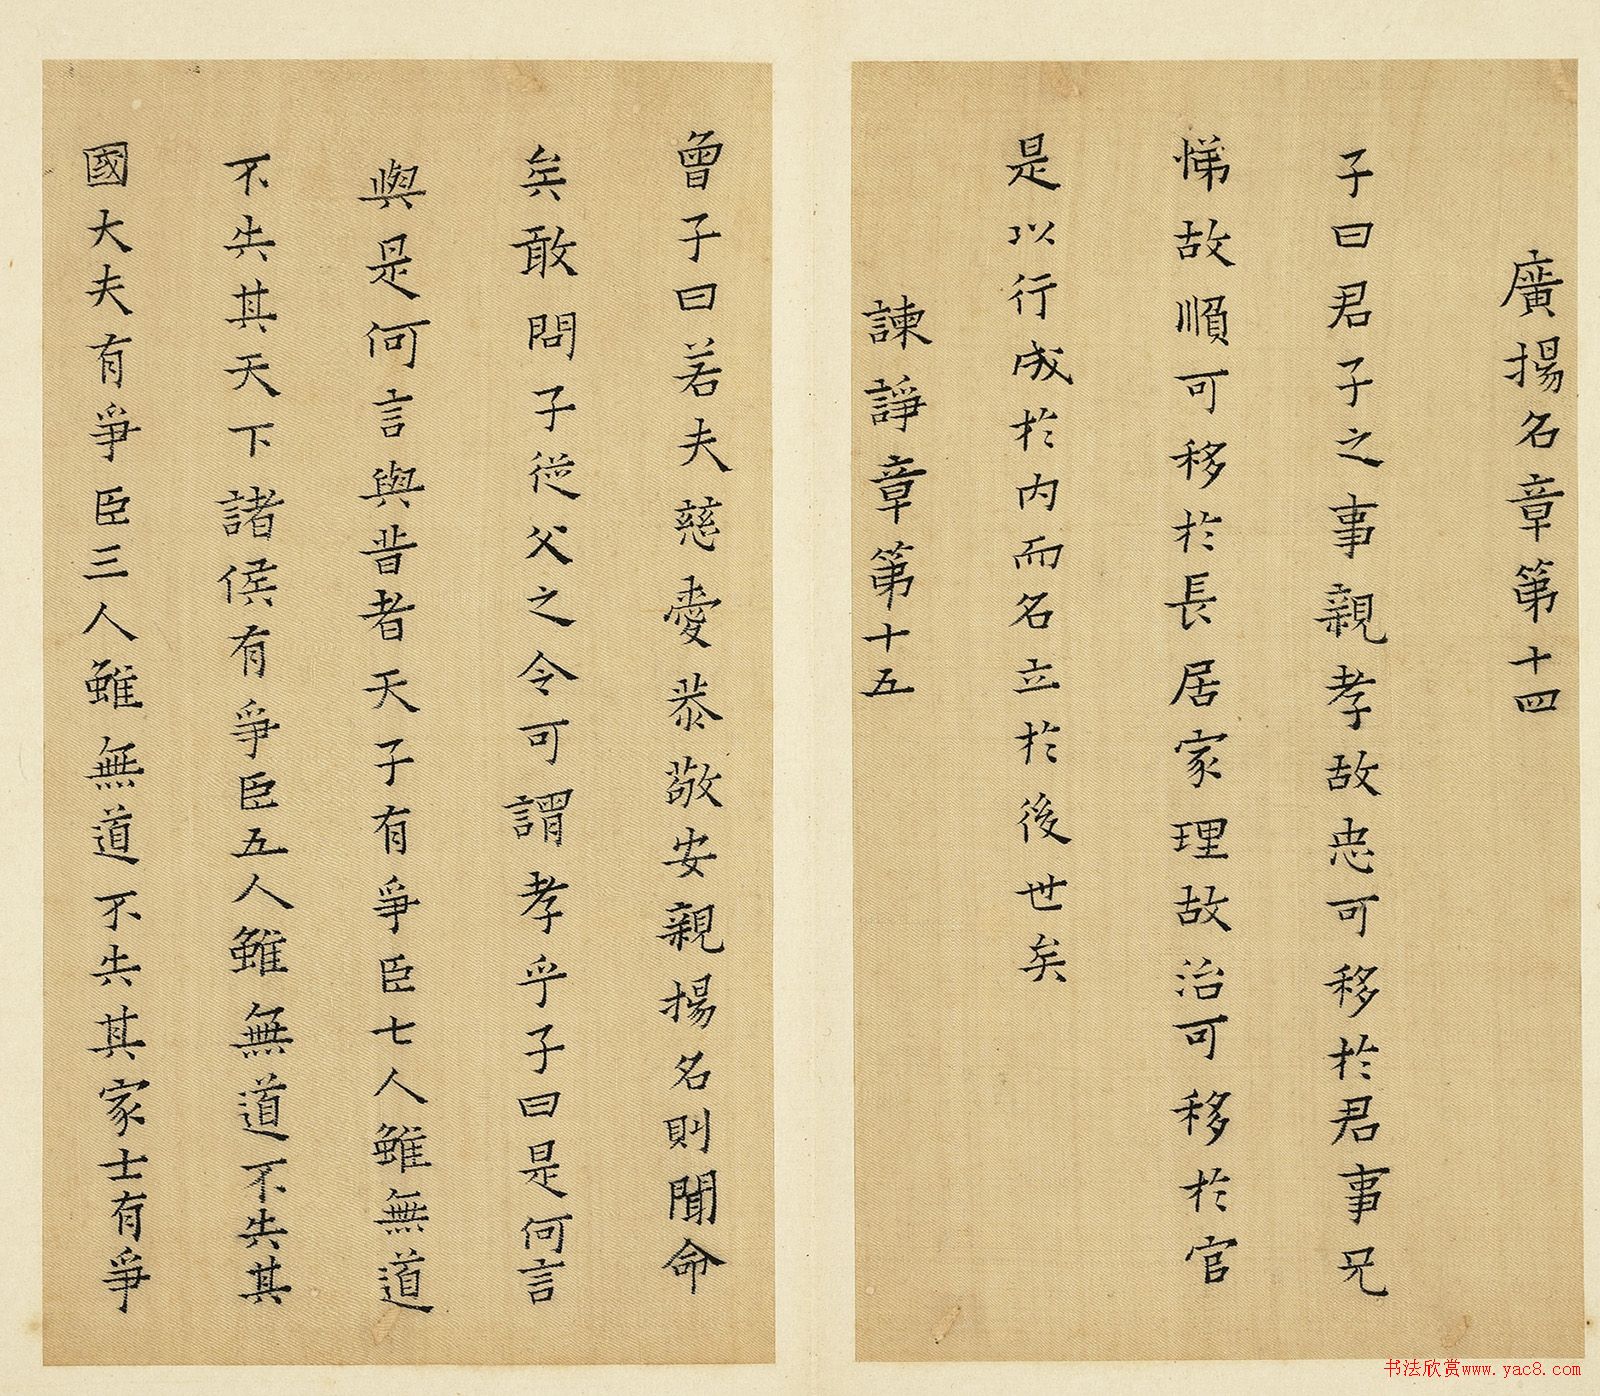 廣揚名章第十四
子曰君子之事親孝故忠可移於君事兄
悌故順可移於長居家理故治可移於官
是以行成於内而名立於後世矣
諫諍章第十五
曾子曰若夫慈愛恭敬安親揚名則聞命
矣敢問子從父之令可謂孝乎子曰是何言
與是何言與昔者天子有爭臣七人雖無道
不失其天下諸侯有爭臣五人雖無道不失其
國大夫有爭臣三人雖無道不失其家士有爭
书法欣赏www.yac8.com